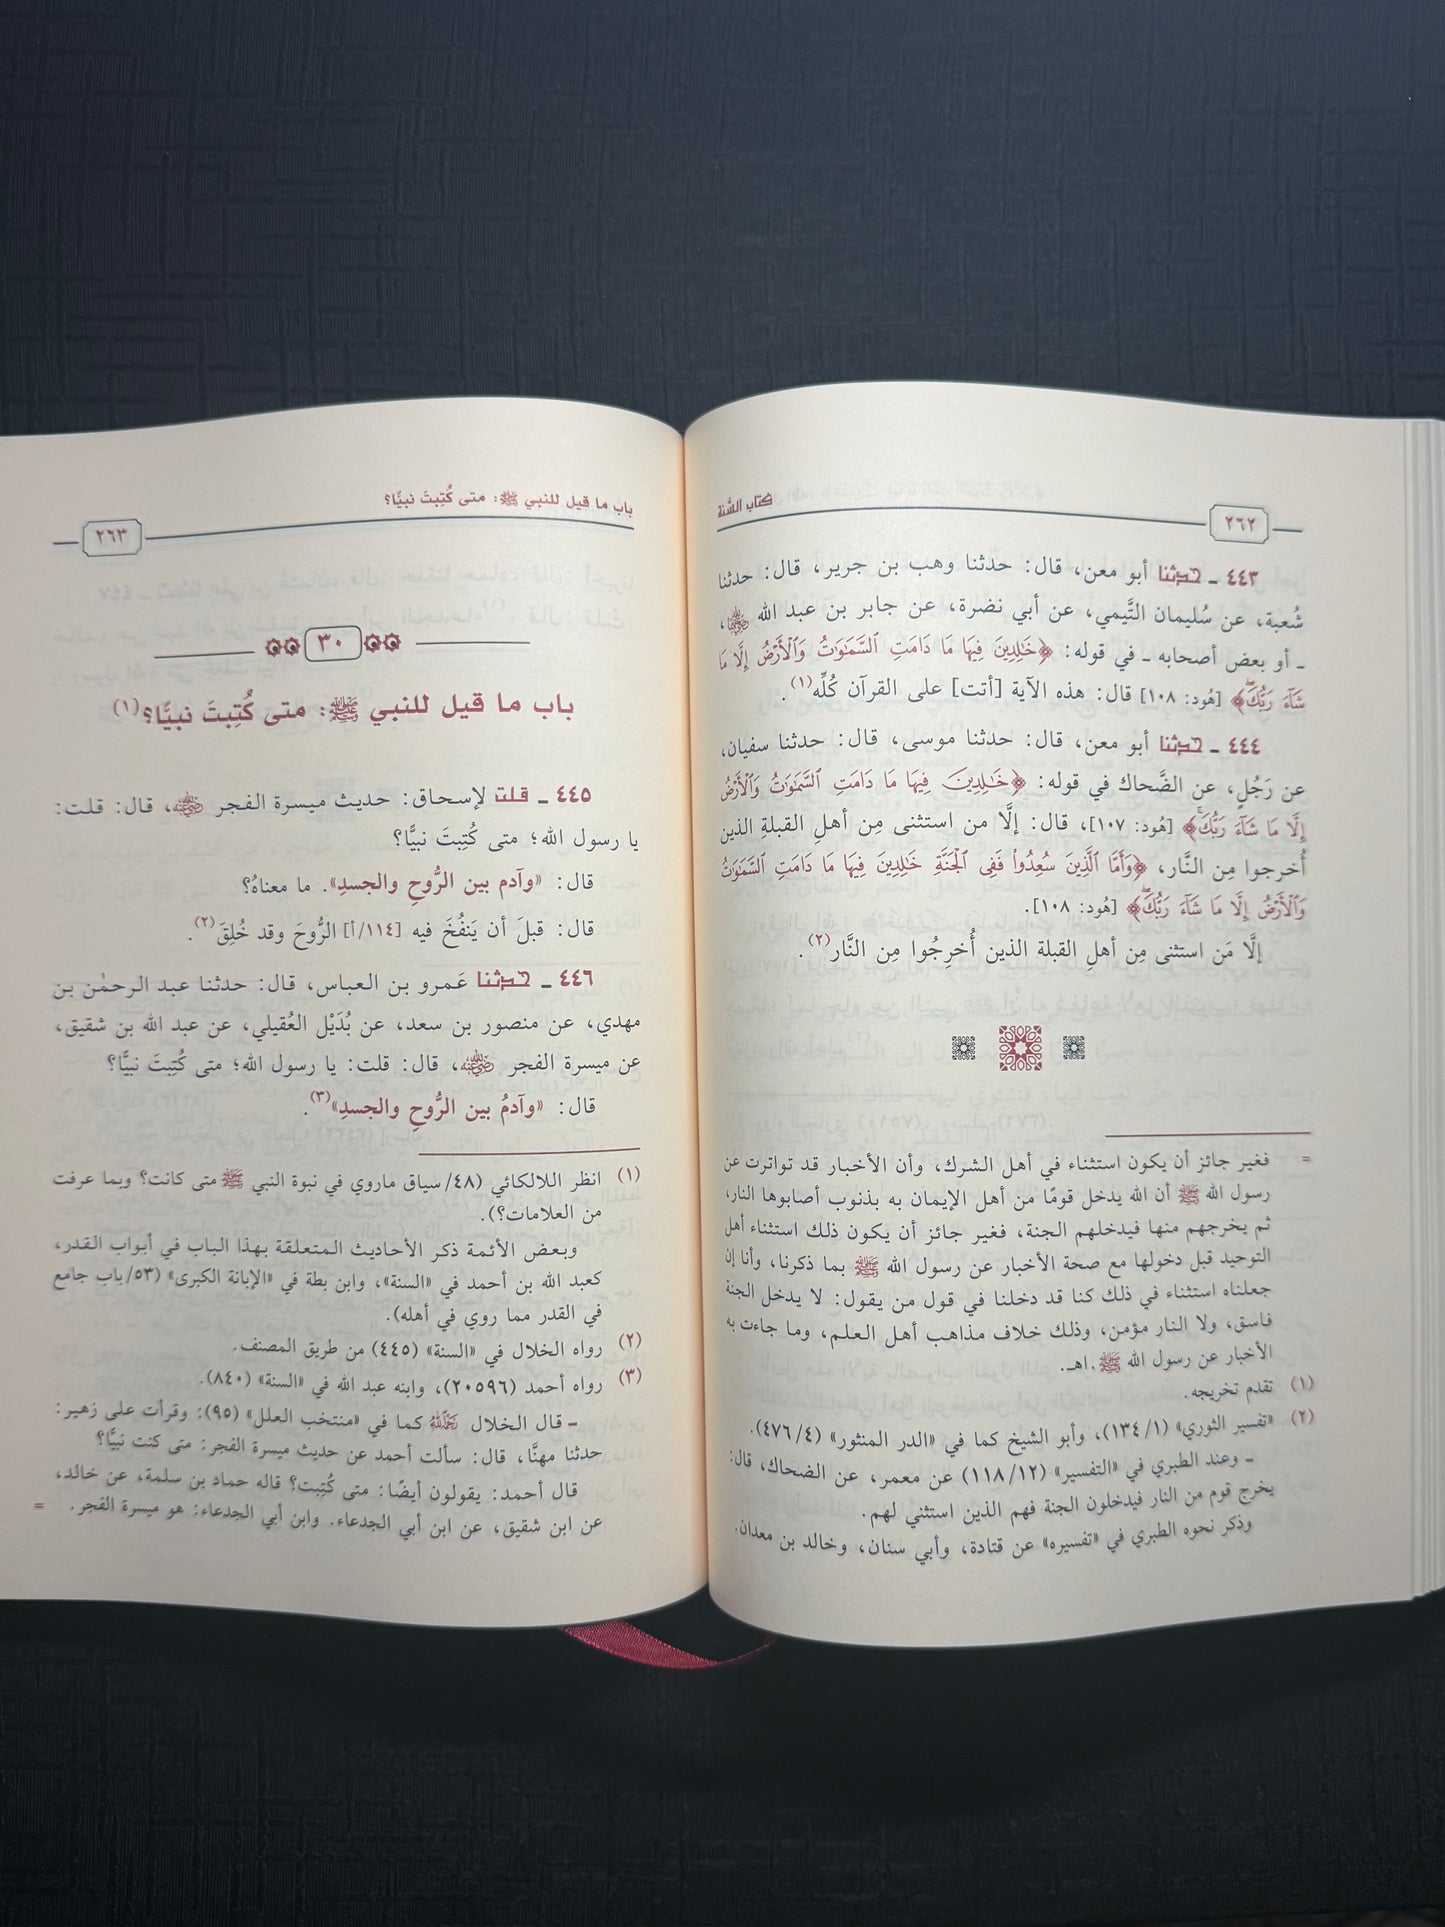 كتاب السُّنة
٢٦٢
٤٤٣ ـ حدثنا أبو معن، قال: حدثنا وهب بن جرير، قال: حدثنا
شُعبة، عن سُليمان التَّيمي، عن أبي نضرة، عن جابر بن عبد الله رضي الله عنهما،
ـ أو بعض أصحابه ـ في قوله: ﴿خَٰلِدِينَ فِيهَا مَا دَامَتِ ٱلسَّمَٰوَٰتُ وَٱلْأَرْضُ إِلَّا مَا
شَآءَ رَبُّكَ﴾ [هُود: ١٠٨] قال: هذه الآية [أتت] على القرآن كُلِّه(١).
٤٤٤ ـ حدثنا أبو معن، قال: حدثنا موسى، قال: حدثنا سفيان،
عن رَجُلٍ، عن الضَّحاك في قوله: ﴿خَٰلِدِينَ فِيهَا مَا دَامَتِ ٱلسَّمَٰوَٰتُ وَٱلْأَرْضُ
إِلَّا مَا شَآءَ رَبُّكَ﴾ [هُود: ١٠٧]، قال: إلَّا من استثنى مِن أهلِ القبلةِ الذين
أُخرجوا مِن النَّار، ﴿وَأَمَّا ٱلَّذِينَ سُعِدُوا۟ فَفِى ٱلْجَنَّةِ خَٰلِدِينَ فِيهَا مَا دَامَتِ ٱلسَّمَٰوَٰتُ
وَٱلْأَرْضُ إِلَّا مَا شَآءَ رَبُّكَ﴾ [هُود: ١٠٨].
إلَّا مَن استثنى مِن أهلِ القبلة الذين أُخرِجُوا مِن النَّار(٢).
= فغير جائز أن يكون استثناء في أهل الشرك، وأن الأخبار قد تواترت عن
رسول الله ﷺ أن الله يدخل قومًا من أهل الإيمان به بذنوب أصابوها النار،
ثم يخرجهم منها فيدخلهم الجنة، فغير جائز أن يكون ذلك استثناء أهل
التوحيد قبل دخولها مع صحة الأخبار عن رسول الله ﷺ بما ذكرنا، وأنا إن
جعلناه استثناء في ذلك كنا قد دخلنا في قول من يقول: لا يدخل الجنة
فاسق، ولا النار مؤمن، وذلك خلاف مذاهب أهل العلم، وما جاءت به
الأخبار عن رسول الله ﷺ. اهـ.
(١) تقدم تخريجه.
(٢) «تفسير الثوري» (١/ ١٣٤)، وأبو الشيخ كما في «الدر المنثور» (٤/ ٤٧٦).
- وعند الطبري في «التفسير» (١٢/ ١١٨) عن معمر، عن الضحاك، قال:
يخرج قوم من النار فيدخلون الجنة فهم الذين استثني لهم.
وذكر نحوه الطبري في «تفسيره» عن قتادة، وأبي سنان، وخالد بن معدان.
باب ما قيل للنبي ﷺ: متى كُتِبتَ نبيًّا؟
٢٦٣
٣٠
باب ما قيل للنبي ﷺ: متى كُتِبتَ نبيًّا؟(١)
٤٤٥ ـ قلت لإسحاق: حديث ميسرة الفجر رضي الله عنه، قال: قلت:
يا رسول الله؛ متى كُتِبتَ نبيًّا؟
قال: «وآدم بين الرُّوحِ والجسدِ». ما معناهُ؟
قال: قبلَ أن يَنفُخَ فيه [١١٤/أ] الرُّوحَ وقد خُلِقَ(٢).
٤٤٦ ـ حدثنا عَمرو بن العباس، قال: حدثنا عبد الرحمٰن بن
مهدي، عن منصور بن سعد، عن بُدَيْل العُقيلي، عن عبد الله بن شقيق،
عن ميسرة الفجر رضي الله عنه، قال: قلت: يا رسول الله؛ متى كُتِبتَ نبيًّا؟
قال: «وآدمُ بين الرُّوحِ والجسدِ»(٣).
(١) انظر اللالكائي (٤٨/ سياق ماروي في نبوة النبي ﷺ متى كانت؟ وبما عرفت
من العلامات؟).
وبعض الأئمة ذكر الأحاديث المتعلقة بهذا الباب في أبواب القدر،
كعبد الله بن أحمد في «السنة»، وابن بطة في «الإبانة الكبرى» (٥٣/ باب جامع
في القدر مما روي في أهله).
(٢) رواه الخلال في «السنة» (٤٤٥) من طريق المصنف.
(٣) رواه أحمد (٢٠٥٩٦)، وابنه عبد الله في «السنة» (٨٤٠).
- قال الخلال رحمه الله كما في «منتخب العلل» (٩٥): وقرأت على زهير:
حدثنا مهنَّا، قال: سألت أحمد عن حديث ميسرة الفجر: متى كنت نبيًّا؟
قال أحمد: يقولون أيضًا: متى كُتِبت؟ قاله حماد بن سلمة، عن خالد،
عن ابن شقيق، عن ابن أبي الجدعاء. وابن أبي الجدعاء: هو ميسرة الفجر. =